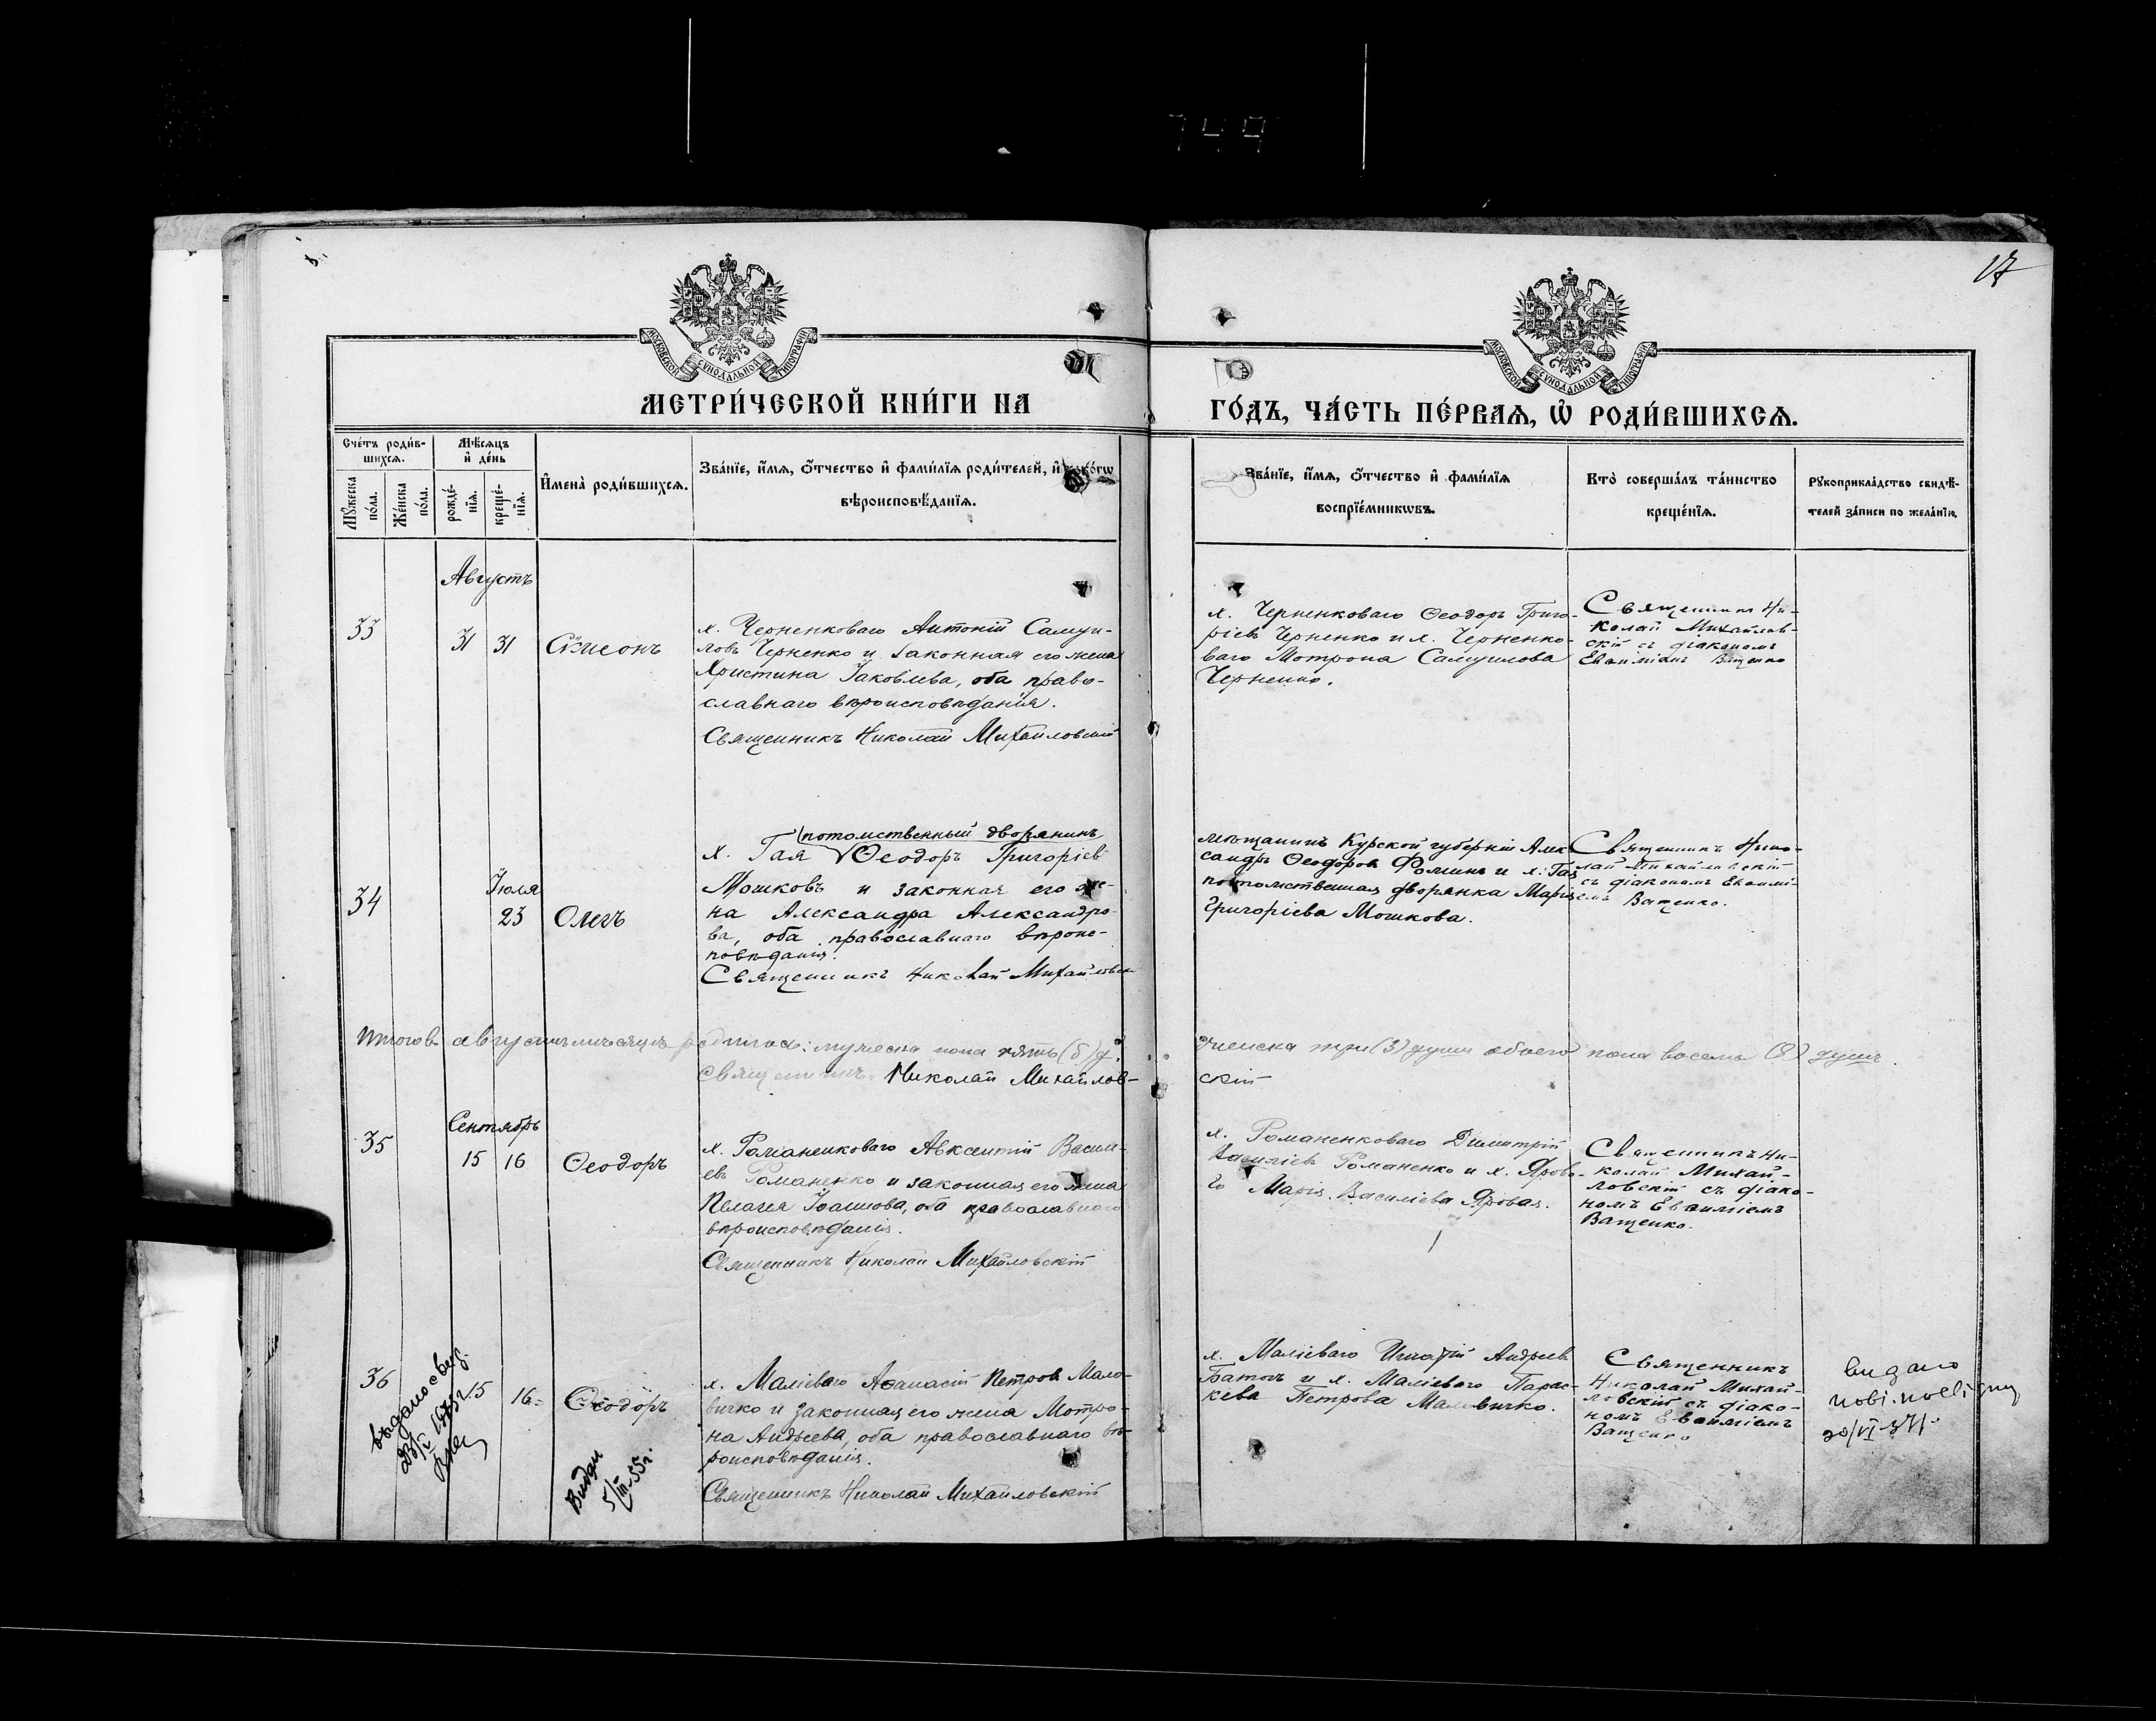 749
17
МОСКОВСКОЙ СѴНОДАЛЬНОЙ ТИПОГРАФІИ
МОСКОВСКОЙ СѴНОДАЛЬНОЙ ТИПОГРАФІИ
МЕТРИ́ЧЕСКОЙ КНИ́ГИ НА
ГО́ДЪ, ЧА́СТЬ ПЕ́РВАѦ, Ѽ РОДИ́ВШИХСѦ.
Сче́тъ роди́в-
шихсѧ.
Мѣ́сѧцъ
и҆ де́нь
И҆мена̀ роди́вшихсѧ.
Зва́нїе, и҆́мѧ, ѻ҆́тчество и҆ фами́лїѧ роди́телей, и҆ како́гѡ
вѣроисповѣ́данїѧ.
Мꙋ́жеска
по́ла.
Же́нска
по́ла.
рожде́-
нїѧ.
креще́-
нїѧ.
Зва́нїе, и҆́мѧ, ѻ҆́тчество и҆ фами́лїѧ
воспрїе́мникѡвъ.
Кто̀ соверша́лъ та́инство
креще́нїѧ.
Рꙋкоприкла́дство свидѣ́-
телей за́писи по жела́нїю.
Августъ
33
31 31 Сѵмеонъ
х. Черненковаго Антоній Самуи-
ловъ Черненко и законная его жена
Христина Іаковлева, оба право-
славнаго вѣроисповѣданія.
Священникъ Николай Михайловскій
х. Черненковаго Ѳеодоръ Григо-
ріевъ Черненко и х. Черненко-
ваго Мотрона Самуилова
Черненко.
Священникъ Ни-
колай Михайлов-
скій съ діакономъ
Евѳиміемъ Ващенко
34
Іюля
23 Олегъ
потомственный дворянинъ
х. Гая Ѳеодоръ Григоріев
Мошковъ и законная его же-
на Александра Александро-
ва, оба православнаго вѣроис-
повѣданія.
Священникъ Николай Михайловск
мѣщанинъ Курской губерніи Алек
сандръ Ѳеодоров Фоминъ и х. Гая
потомственная дворянка Марія
Григоріева Мошкова.
Священникъ Нико-
лай Михайловскій
съ діакономъ Евѳимі-
емъ Ващенко.
Итого въ августѣ мѣсяцѣ родилось: мужеска пола пять (5) д.
женска три (3) души обоего пола восемь (8) душъ.
Священникъ Николай Михайлов-
скій
Сентябрь
35
15 16 Ѳеодоръ
х. Романенковаго Авксентій Васил-
евъ Романенко и законная его жена
Пелагея Іоаннова, оба православнаго
вѣроисповѣданія.
Священникъ Николай Михайловскій
х. Романенковаго Димитрій
Василіев Романенко и х. Ярово-
го Марія Василіева Яровая.
Священникъ Ни-
колай Михай-
ловскій съ діако-
номъ Евѳиміемъ
Ващенко.
36
15 16 Ѳеодоръ
х. Маліеваго Аѳанасій Петров Мало-
вичко и законная его жена Мотро-
на Андреева, оба православнаго вѣ-
роисповѣданія.
Священникъ Николай Михайловскій
х. Маліеваго Игнатій Андреев
и х. Маліеваго Парас-
кева Петрова Маловичко.
Священникъ
Николай Михай-
ловскій съ діако-
номъ Евѳиміемъ
Ващенко
Видан
5/III-55г.
видано
20/VI-37г.